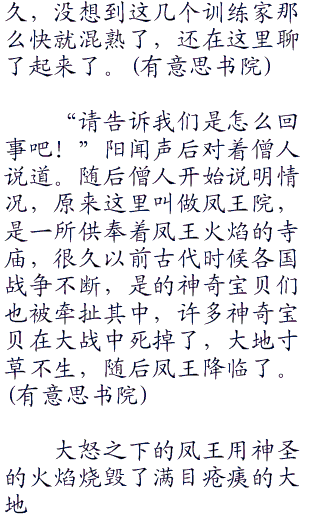 久，没想到这几个训练家那
么快就混熟了，还在这里聊
了起来了。(有意思书院)
“请告诉我们是怎么回
事吧！”阳闻声后对着僧人
说道。随后僧人开始说明情
况，原来这里叫做凤王院，
是一所供奉着凤王火焰的寺
庙，很久以前古代时候各国
战争不断，是的神奇宝贝们
也被牵扯其中，许多神奇宝
贝在大战中死掉了，大地寸
草不生，随后凤王降临了。
(有意思书院)
大怒之下的凤王用神圣
的火焰烧毁了满目疮痍的大
地